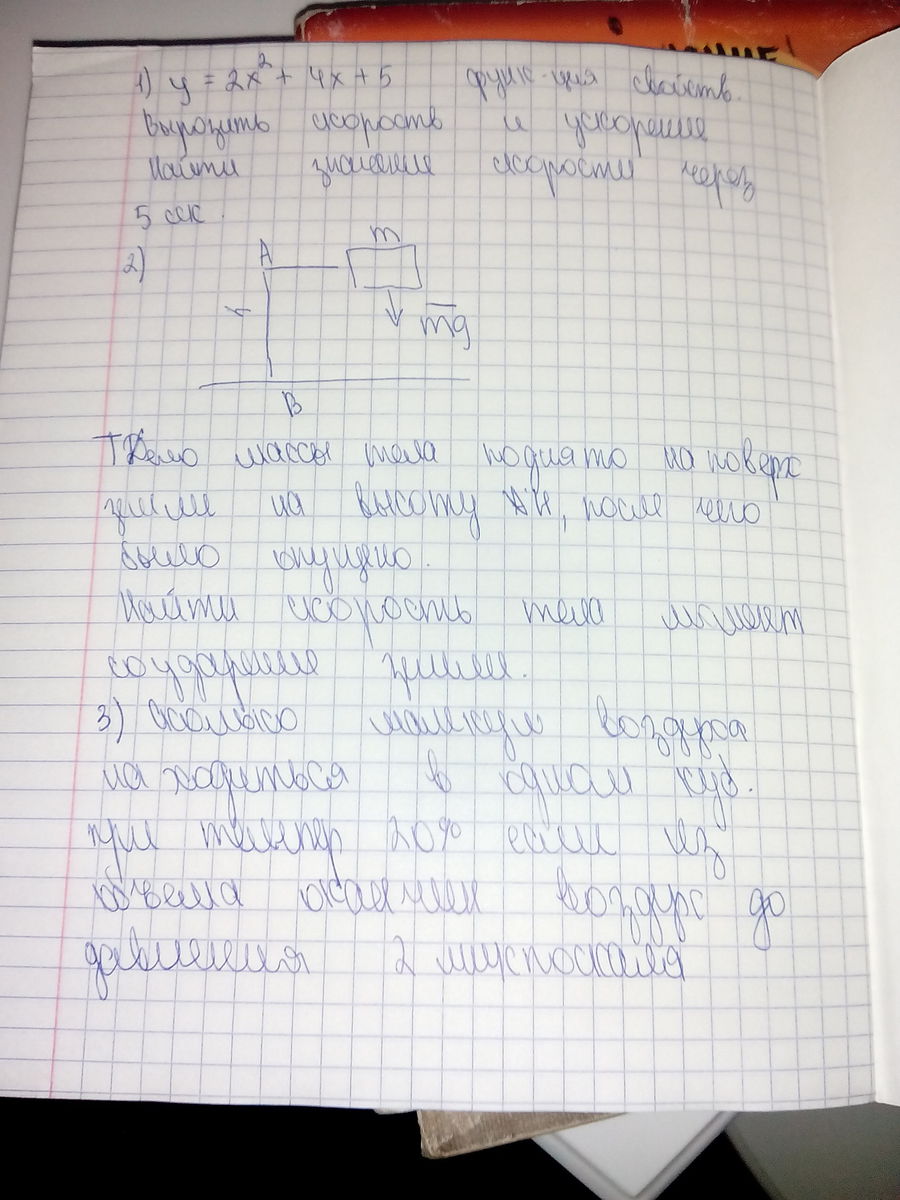 1) y = 2x² + 4x + 5 функ-ция свойств.
Вырозить скорость и ускорение
Найти значение скорости через
5 сек.
2)
m
A
mg
B
Тело массы тела поднято на поверх
земли на высоту H, после чего
было опущено.
Найти скорость тела момент
соударение земли.
3) Сколько молекул воздуха
находиться в одном куб.
при темпер 20% если из
объема откачен воздух до
давления 2